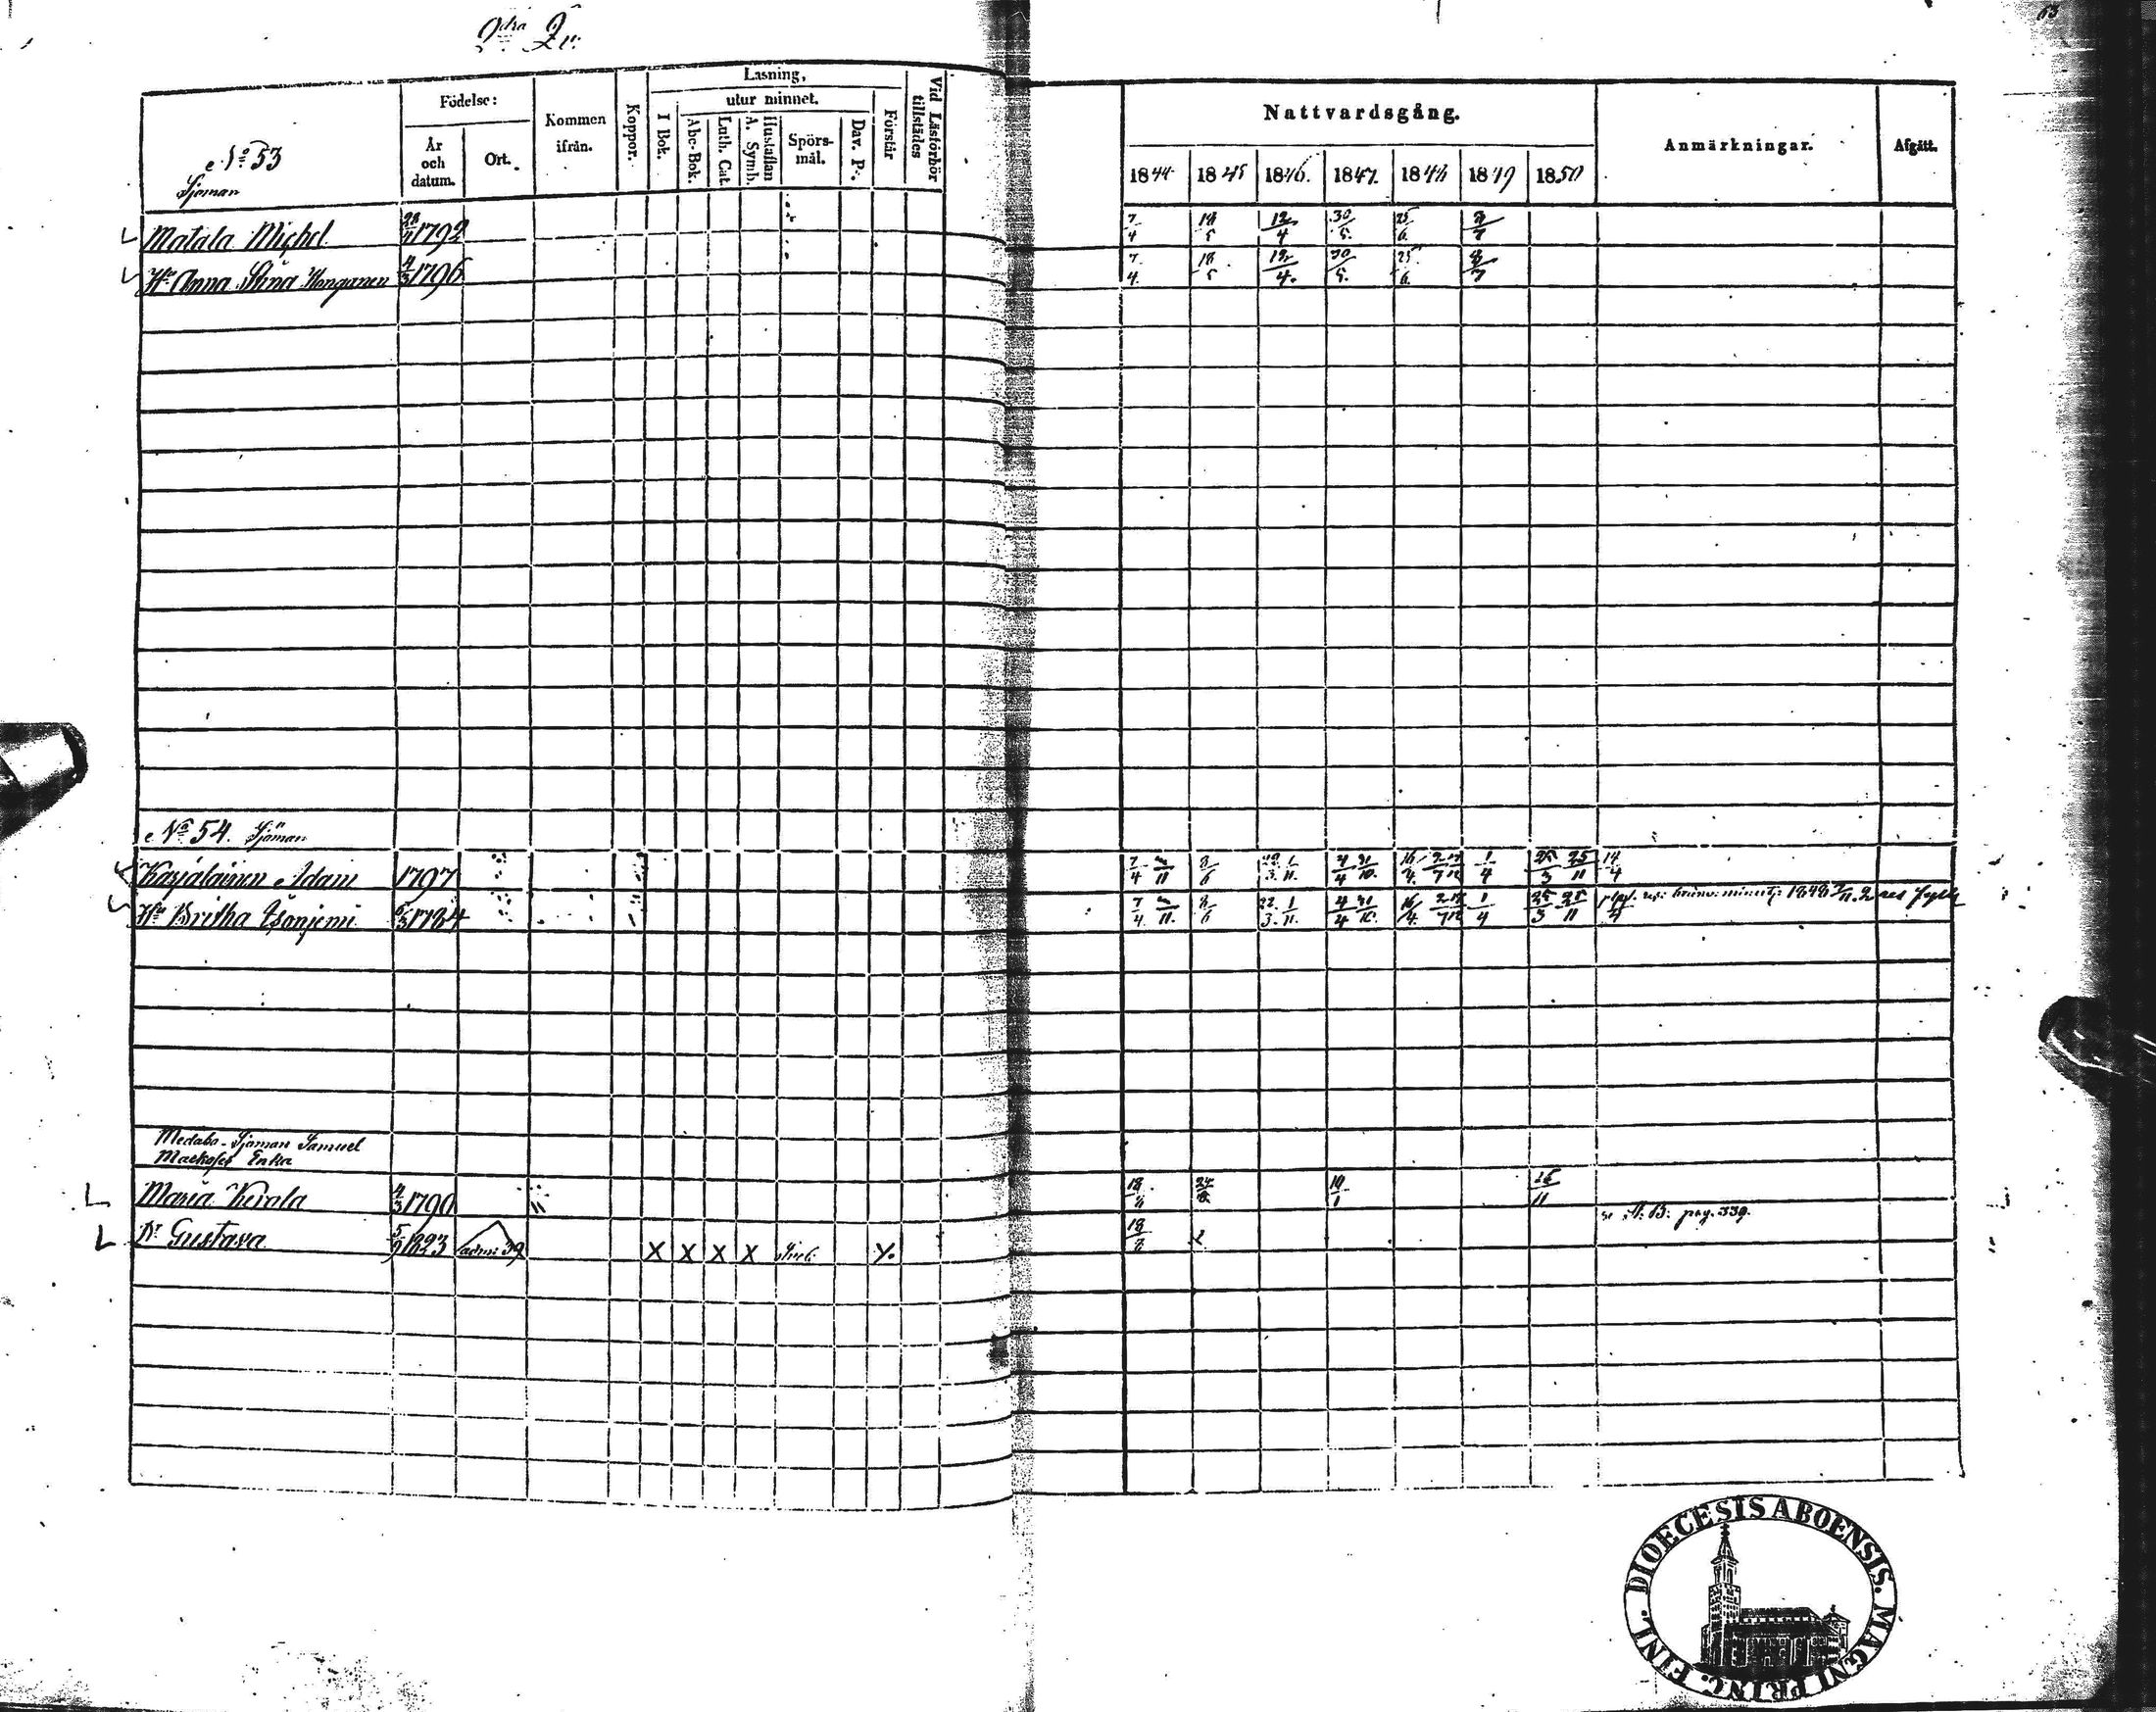 2dra Qu:
63
Födelse:
Kommen ifrån.
Koppor.
Läsning,
utur minnet.
I Bok.
Abc-Bok.
Luth. Cat.
A. Symb. Hustaflan
Spörsmål.
Dav. Ps.
Förstår
Vid Läsförhör tillstädes
År och datum.
Ort.
Nattvardsgång.
Anmärkningar.
Afgått.
1844 1845 1846. 1847. 1848 1849 1850
No 53
Sjöman
Matala Michel 28/9 1792 7/4 18/5 12/4 30/5 25/6 8/7
Hu Anna Stina Honganen 4/3 1796 7/4 18/5 12/4 30/5 25/6 8/7
No 54. Sjöman
Karjalainen Adam 1797 7/4 8/6 4/4 31/10 16/4 1/4 25/3 25/11 14/4
Hu Britha 6/3 1784 7/4 8/6 22/3 1/11 4/4 31/10 16/4 1/4 25/3 25/11 1848
Sjöman Samuel
Enka
Maria Kerala 4/3 1790 18/8 24/8 10/1 26/11
se pag. 339.
Dr Gustava 5/9 1823 adm: 39 X X X X 18/8
DIOECESIS ABOENSIS. MAGNI PRINC. FINL.